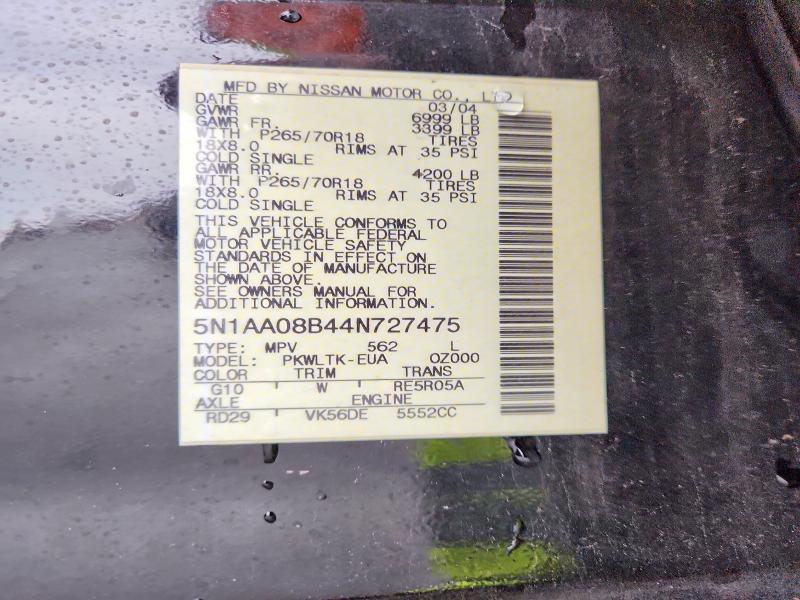 MFD BY NISSAN MOTOR CO., LTD
DATE 03/04
GVWR 6999 LB
GAWR FR. 3399 LB
WITH P265/70R18 TIRES
18X8.0 RIMS AT 35 PSI
COLD SINGLE
GAWR RR. 4200 LB
WITH P265/70R18 TIRES
18X8.0 RIMS AT 35 PSI
COLD SINGLE
THIS VEHICLE CONFORMS TO
ALL APPLICABLE FEDERAL
MOTOR VEHICLE SAFETY
STANDARDS IN EFFECT ON
THE DATE OF MANUFACTURE
SHOWN ABOVE.
SEE OWNERS MANUAL FOR
ADDITIONAL INFORMATION.
5N1AA08B44N727475
TYPE: MPV 562 L
MODEL: PKWLTK-EUA OZ000
COLOR TRIM TRANS
G10 W RE5R05A
AXLE ENGINE
RD29 VK56DE 5552CC